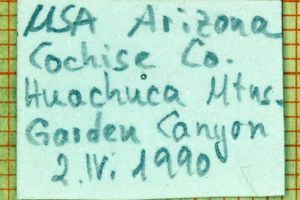 USA Arizona
Cochise Co.
Huachuca Mtns.
Garden Canyon
2.IV. 1990